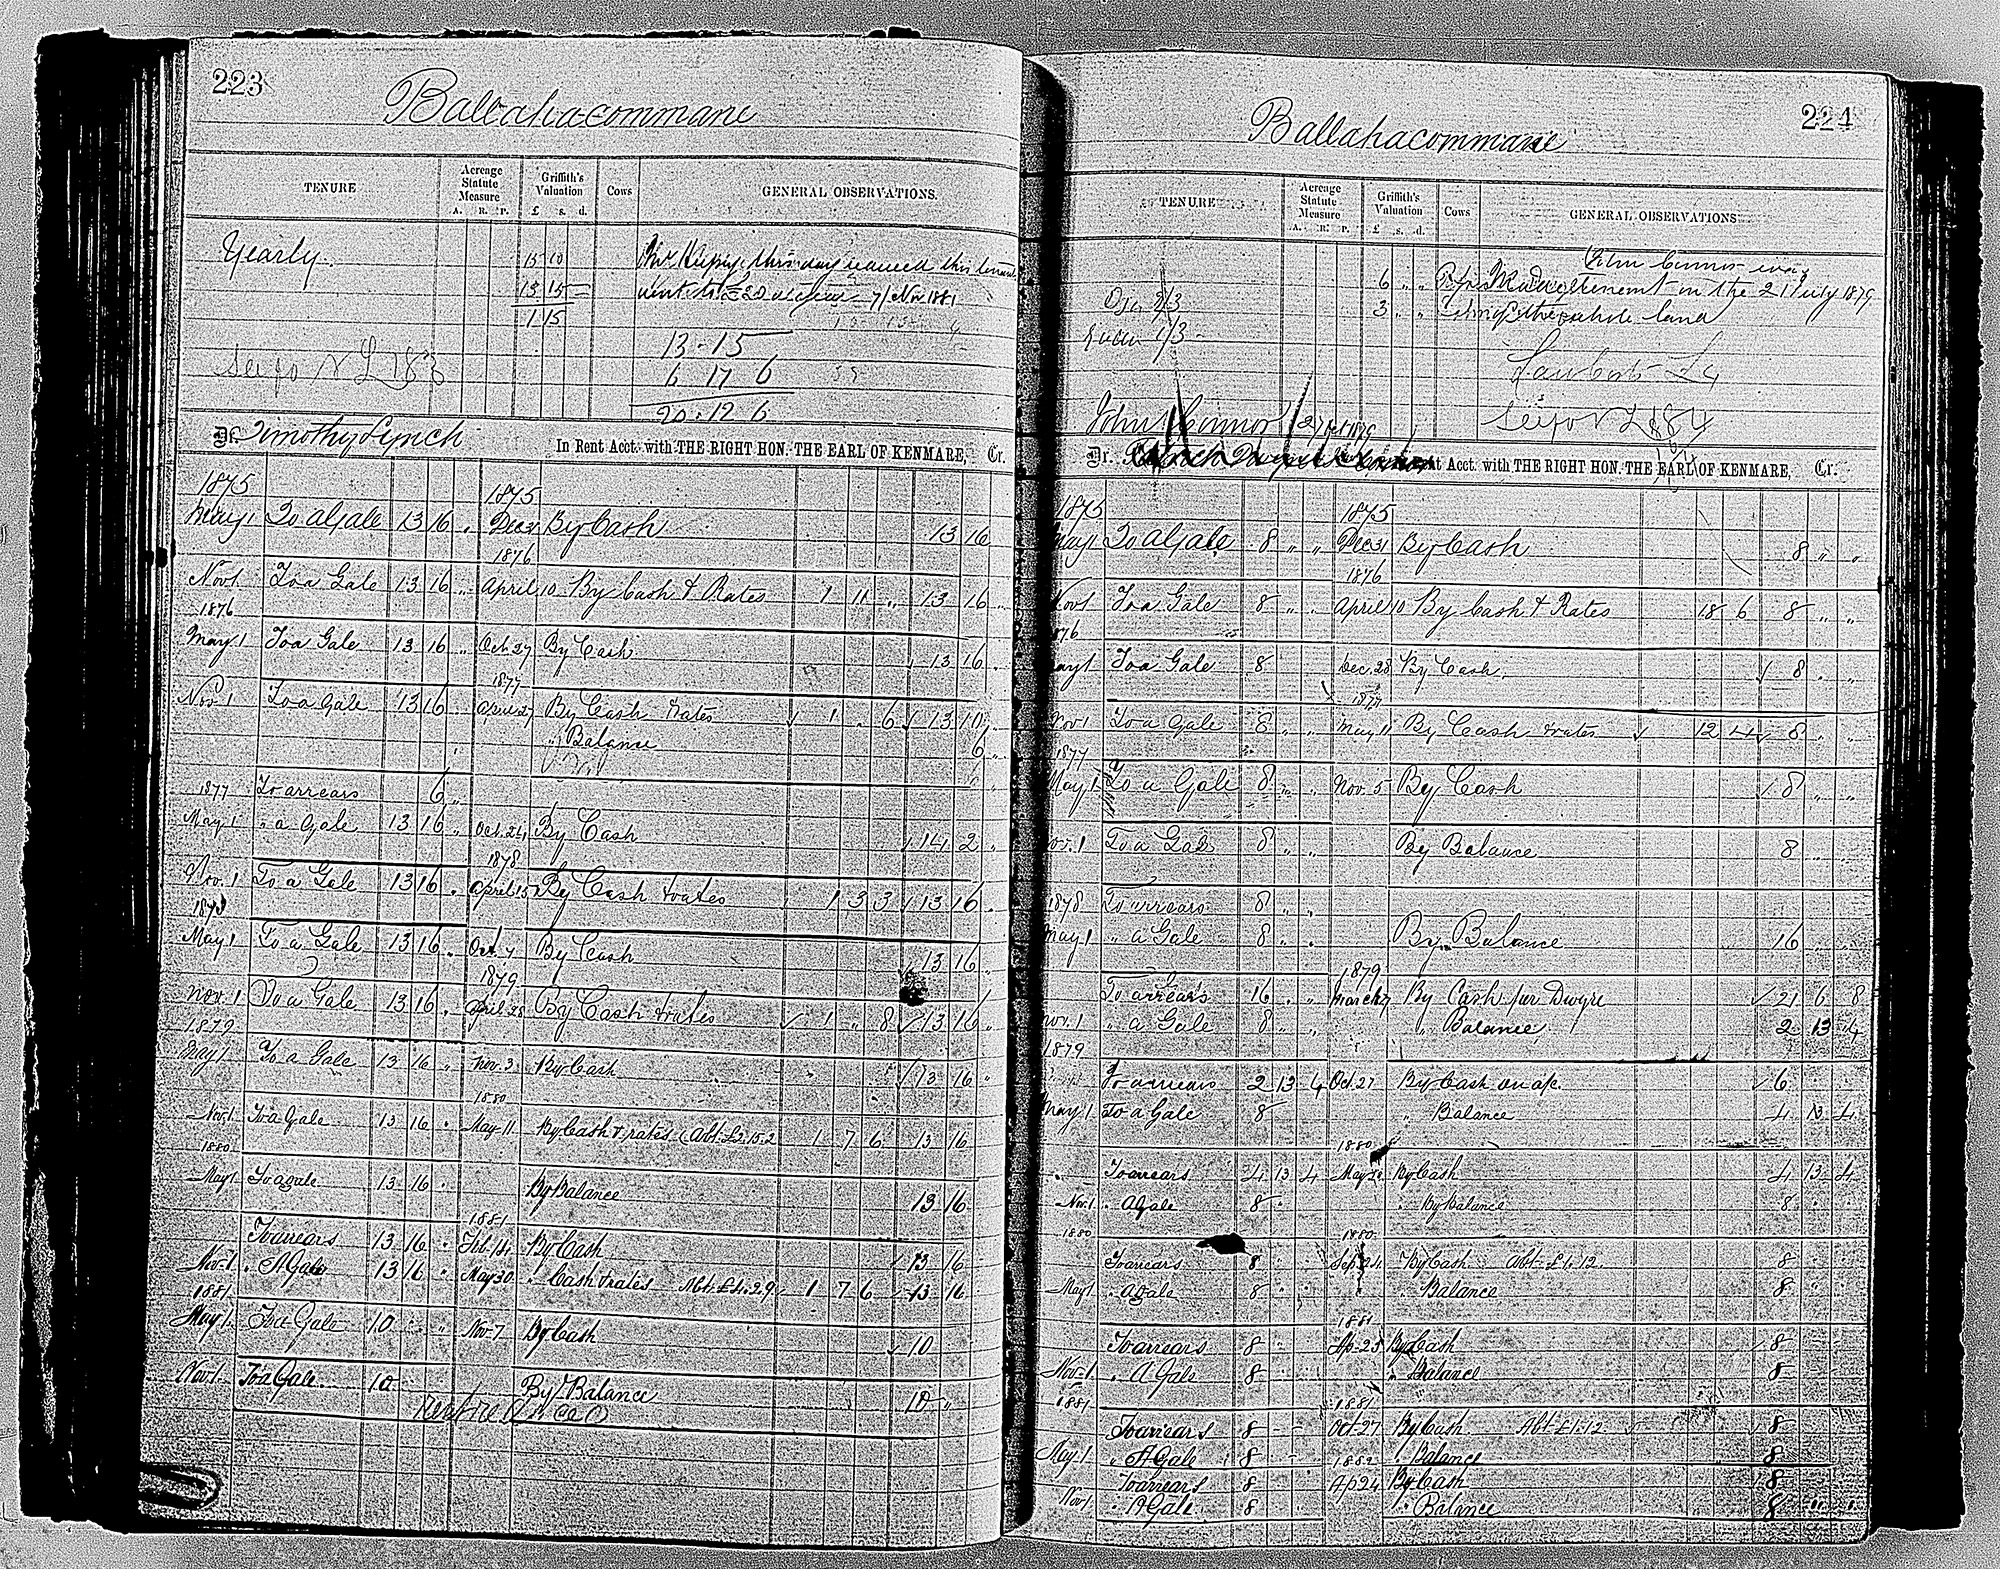 223
Ballahacommane
TENURE
Acreage Statute Measure
A. R. P.
Griffith's Valuation
£ s. d.
Cows
GENERAL OBSERVATIONS.
Yearly
15 10
this day this
13 15
7/Nov 1881
1 15
13 - 15
6 17 6
20 . 12 6
Dr. Timothy Lynch In Rent Acct. with THE RIGHT HON. THE EARL OF KENMARE, Cr.
1875 1875
May 1 To a Gale 13 16 " Dec 31 By Cash 13 16
1876
Nov 1 To a Gale 13 16 " April 10 By Cash & Rates 1 11 " 13 16 "
1876
May 1 To a Gale 13 16 " Oct. 27 By Cash 13 16
1877
Nov 1 To a Gale 13 16 " April 27 By Cash & rates 1 . 6 13 10 "
" Balance 6 "
1877 To arrears 6 "
May 1 " a Gale 13 16 " Oct. 24 By Cash 14 2
1878
Nov. 1 To a Gale 13 16 " April 15 By Cash & rates 1 3 3 13 16
1878
May 1 To a Gale 13 16 " Oct. 7 By Cash 13 16 "
1879
Nov. 1 To a Gale 13 16 " April 28 By Cash & rates 1 " 8 13 16 "
1879
May 1 To a Gale 13 16 " Nov. 3 By Cash 13 16 "
1880
Nov. 1 To a Gale 13 16 " May 11 By Cash & rates (Abt. £2.15.2 1 7 6 13 16
1880
May 1 To a gale 13 16 " By Balance 13 16
1881
To arrears 13 16 " Feb. 14 By Cash 13 16
Nov. 1 " A Gale 13 16 " May 30 " Cash & rates Abt. £4.2.9 1 7 6 13 16
1881
May 1. To a Gale 10 " " Nov 7 By Cash 10
Nov 1. To a Gale 10 By Balance 10 "
224
Ballahacommane
TENURE
Acreage Statute Measure
A. R. P.
Griffith's Valuation
£ s. d.
Cows
GENERAL OBSERVATIONS
John Connor
6 " " on the 21 July 1879
2/3
3 " " of the whole land
1/3
John Connor
Dr. Acct. with THE RIGHT HON. THE EARL OF KENMARE, Cr.
1875 1875
May 1 To a Gale 8 " " Dec 31 By Cash 8 " "
1876
Nov 1 To a Gale 8 " " April 10 By Cash & Rates 18 6 8 " "
1876
May 1 To a Gale 8 Dec. 28 By Cash 8 " "
1877
Nov 1 To a Gale 8 " " May 11 By Cash & rates 12 4 8 " "
1877
May 1 To a Gale 8 " " Nov. 5 By Cash 8 " "
Nov. 1 To a Gale 8 " " By Balance 8 " "
1878 To arrears 8 " "
May 1 " a Gale 8 " " By Balance 16 " "
1879
To arrears 16 " " March 7 By Cash per Dwyre 21 6 8
Nov. 1 " a Gale 8 " " " Balance 2 13 4
1879
To arrears 2 13 4 Oct. 27 By Cash on a/c 6
May 1 To a Gale 8 " Balance 4 13 4
1880
To arrears 4 13 4 May 21 By Cash 4 13 4
Nov. 1 " A Gale 8 " By Balance 8
1880 1880
To arrears 8 Sep 24 By Cash Abt. £1.12. 8
May 1 " A gale 8 " Balance 8
1881
To arrears 8 Ap. 23 By Cash 8
Nov. 1 " A Gale 8 " Balance 8
1881 1881
To arrears 8 Oct. 27 By Cash Abt. £1.12 8
May 1 " A Gale 8 1882 " Balance 8
To arrears 8 Ap 24 By Cash 8
Nov 1 " A Gale 8 " Balance 8 " "